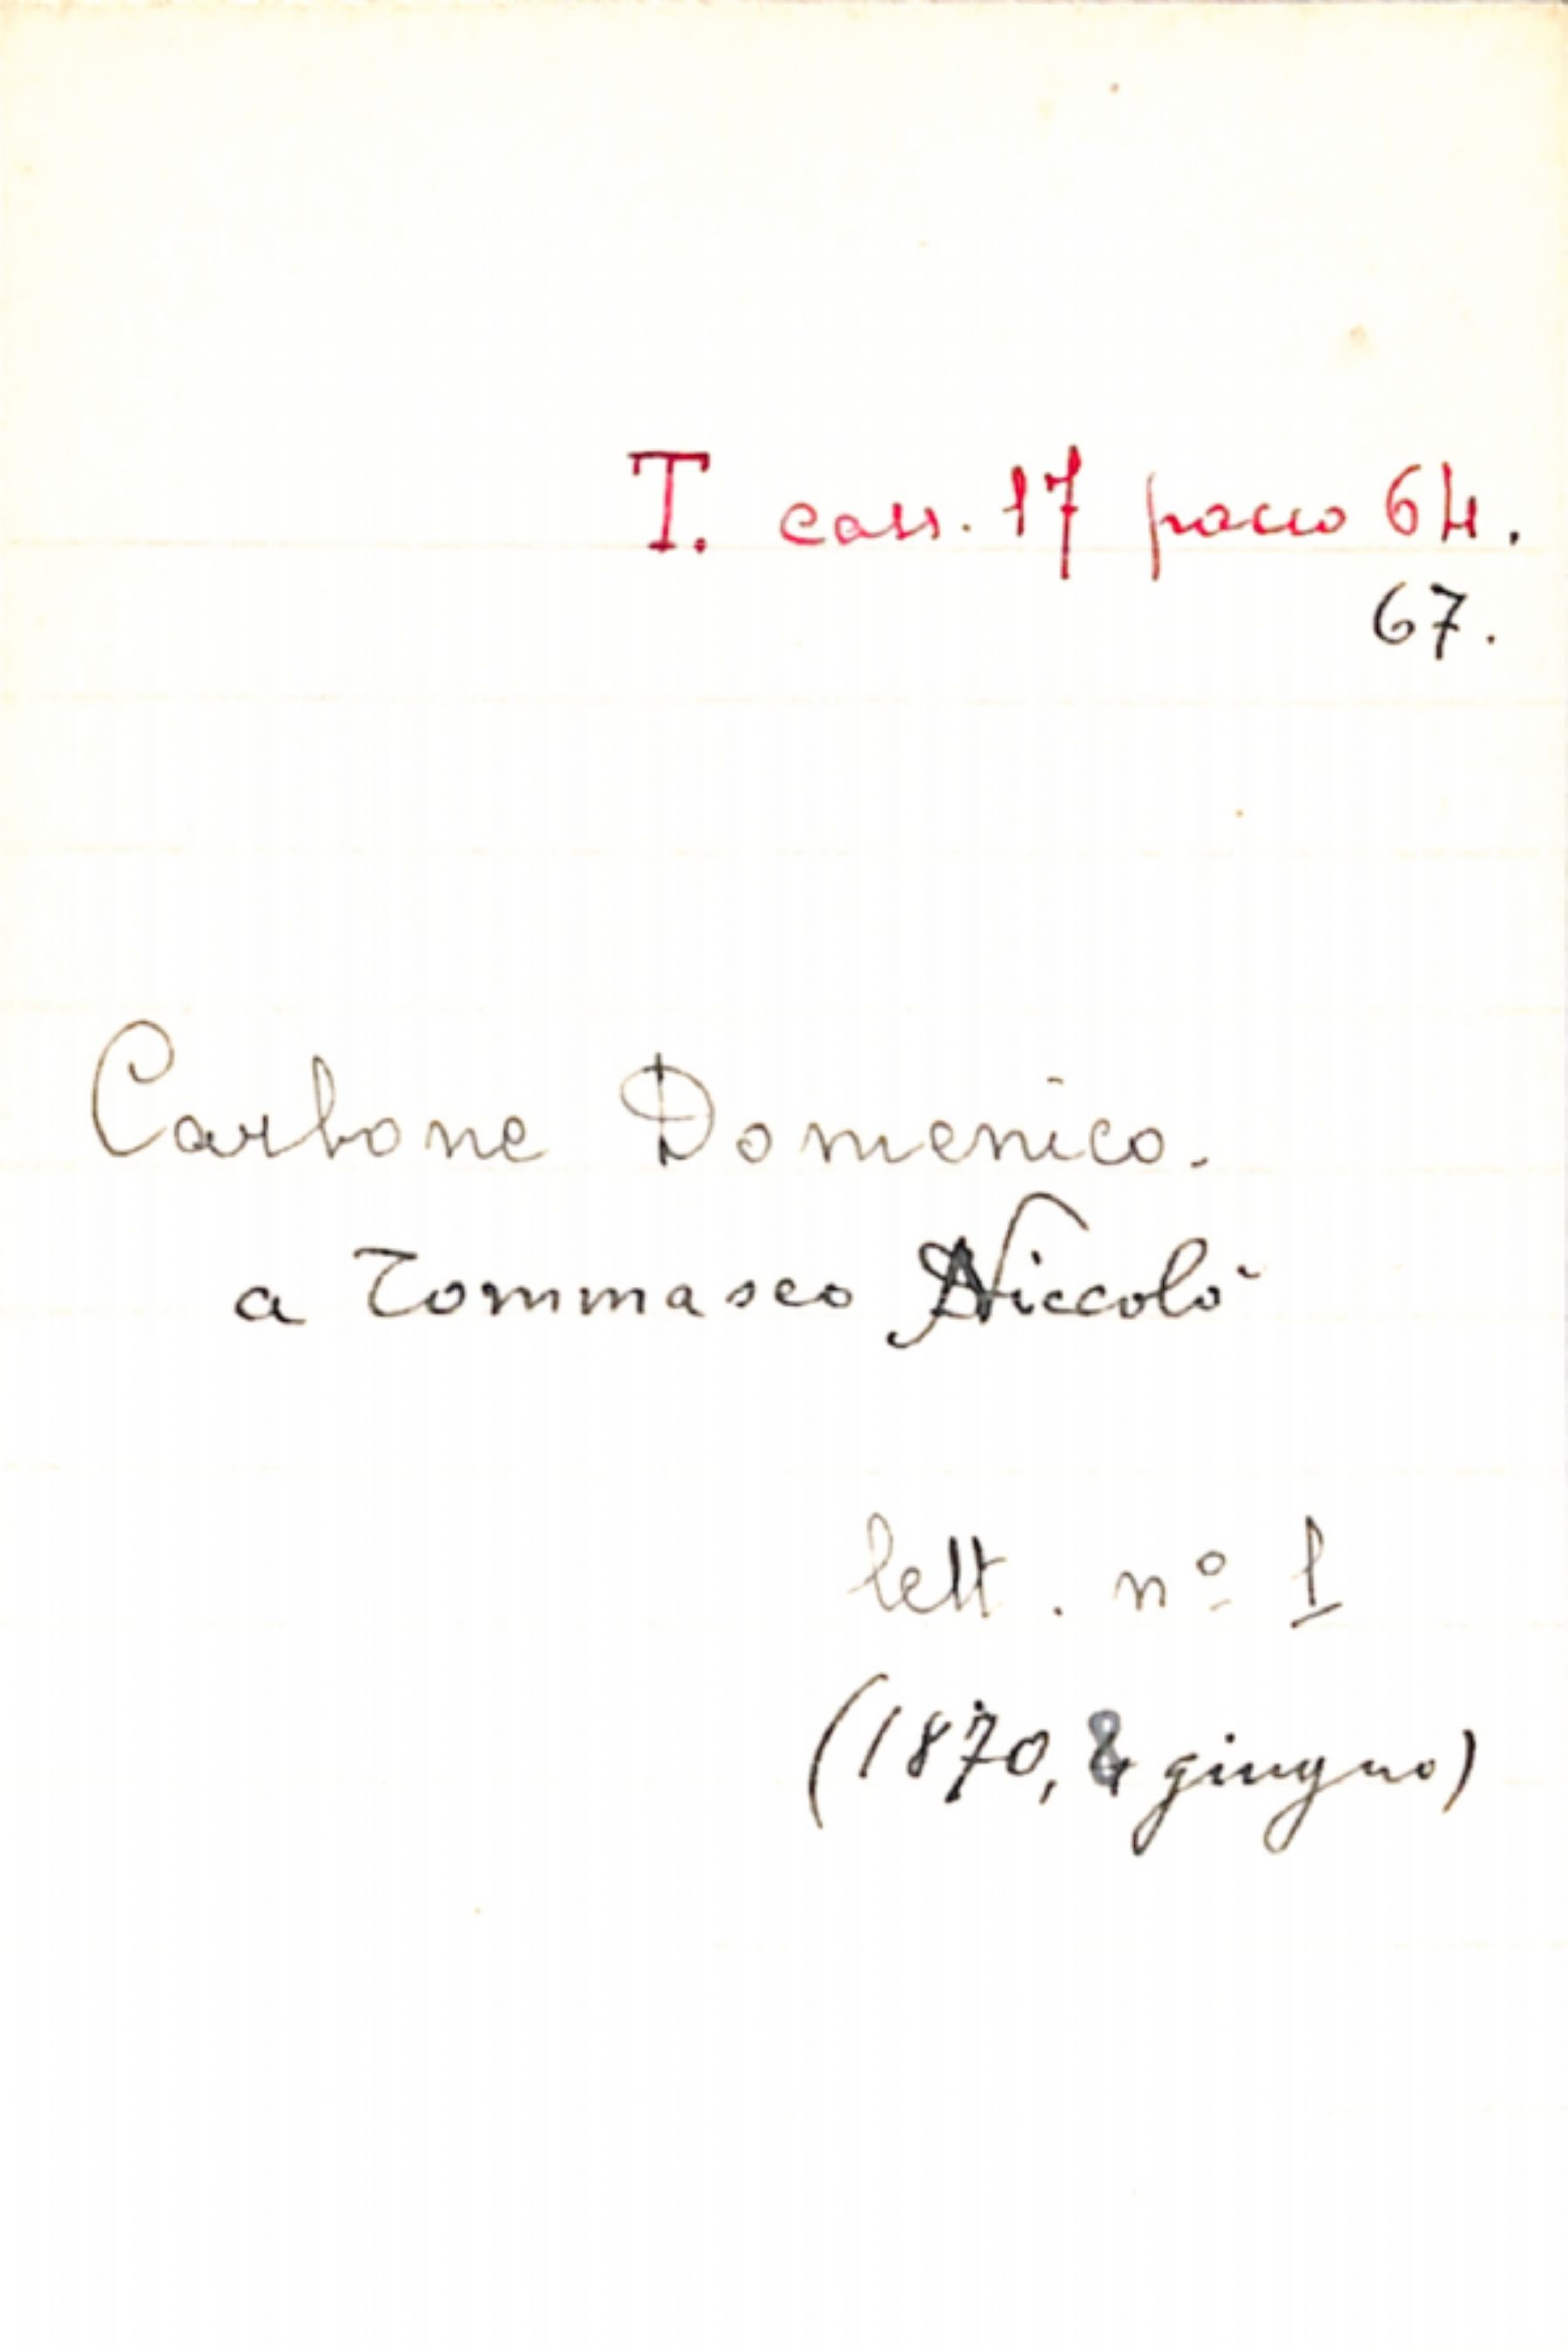 T. cass. 17 pacco 64.
67.
Carbone Domenico.
a Tommaseo Niccolò
lett. nº 1
(1870, giugno)